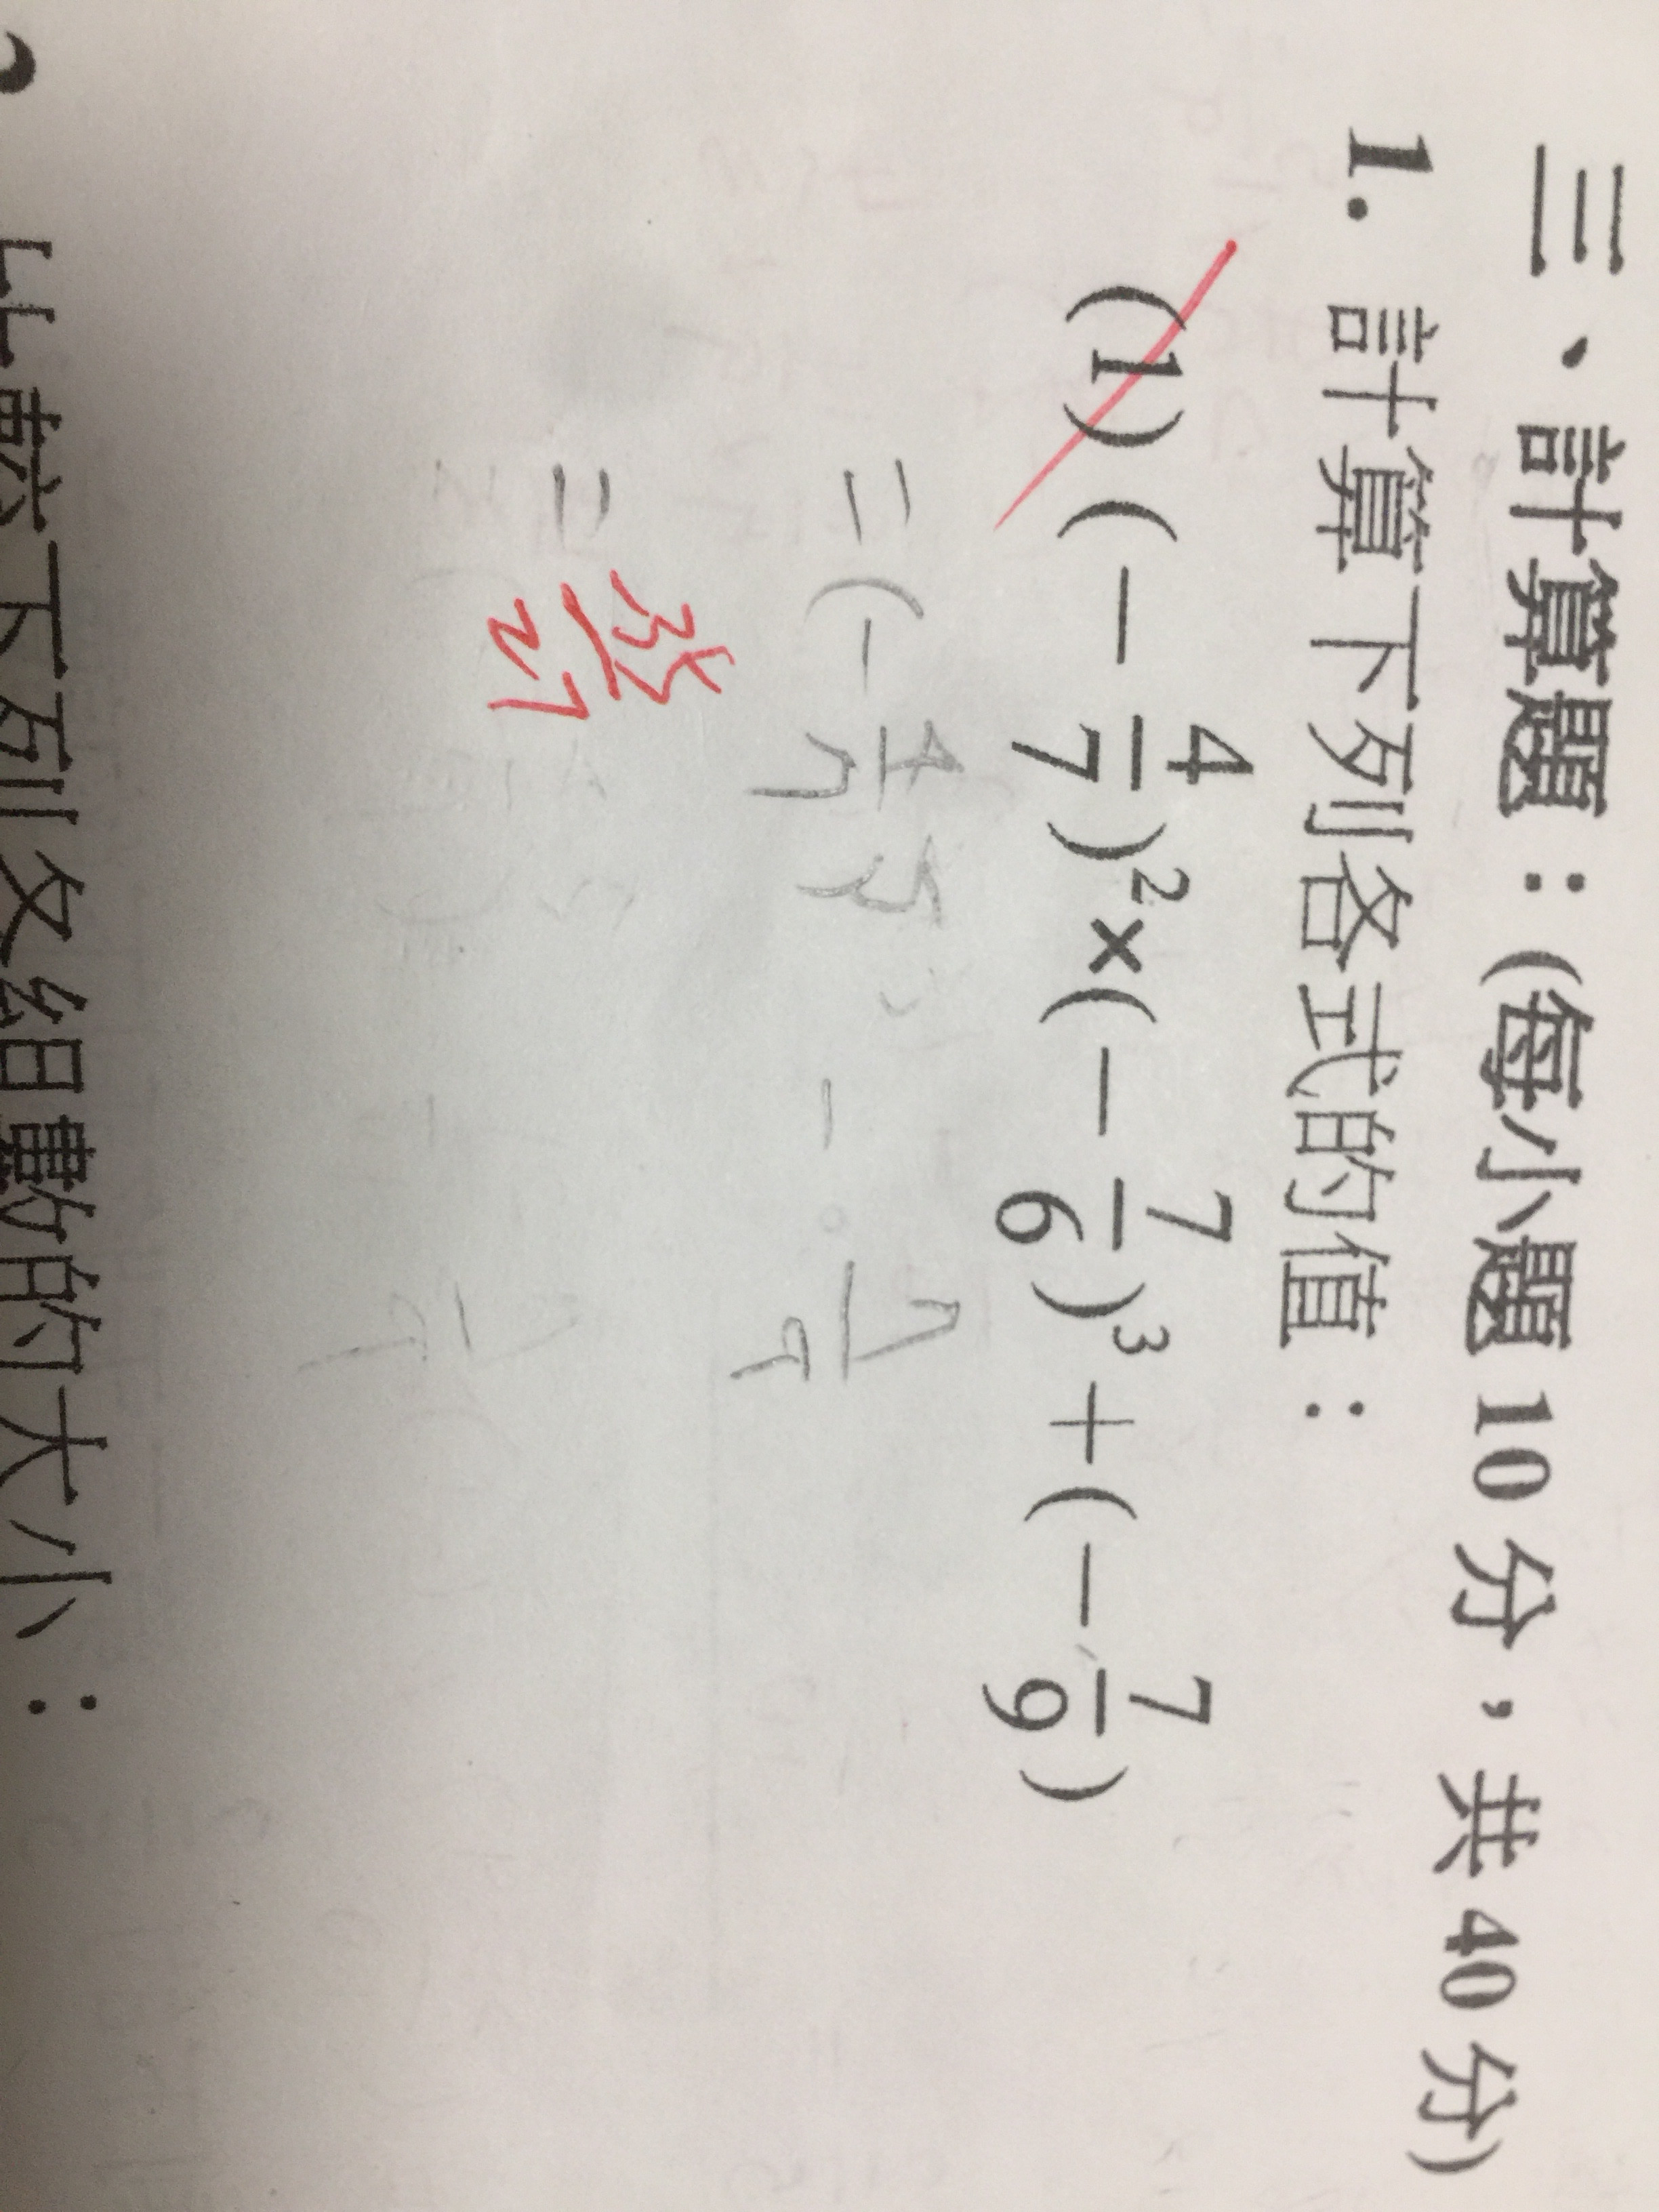 三、計算題：(每小題 10 分，共 40 分)
1. 計算下列各式的值：
(1) (－4/7)²×(－7/6)³＋(－7/9)
=(－4/7)
=
-35/27
比較下列各組數的大小：